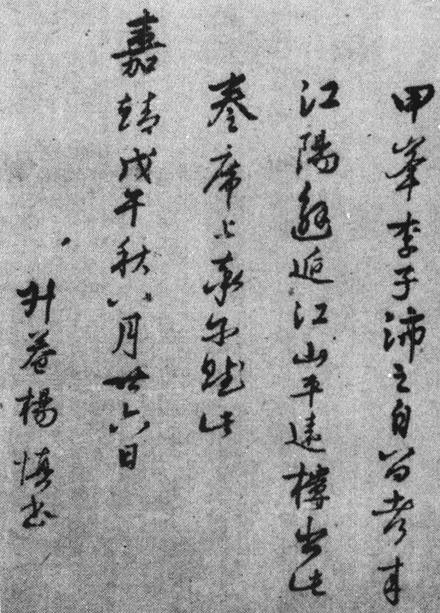 甲峯李子沛之自留考来
江陽邂逅江山平遠樓出此
卷席上承命賦此
嘉靖戊午秋八月廿六日
升菴楊慎書